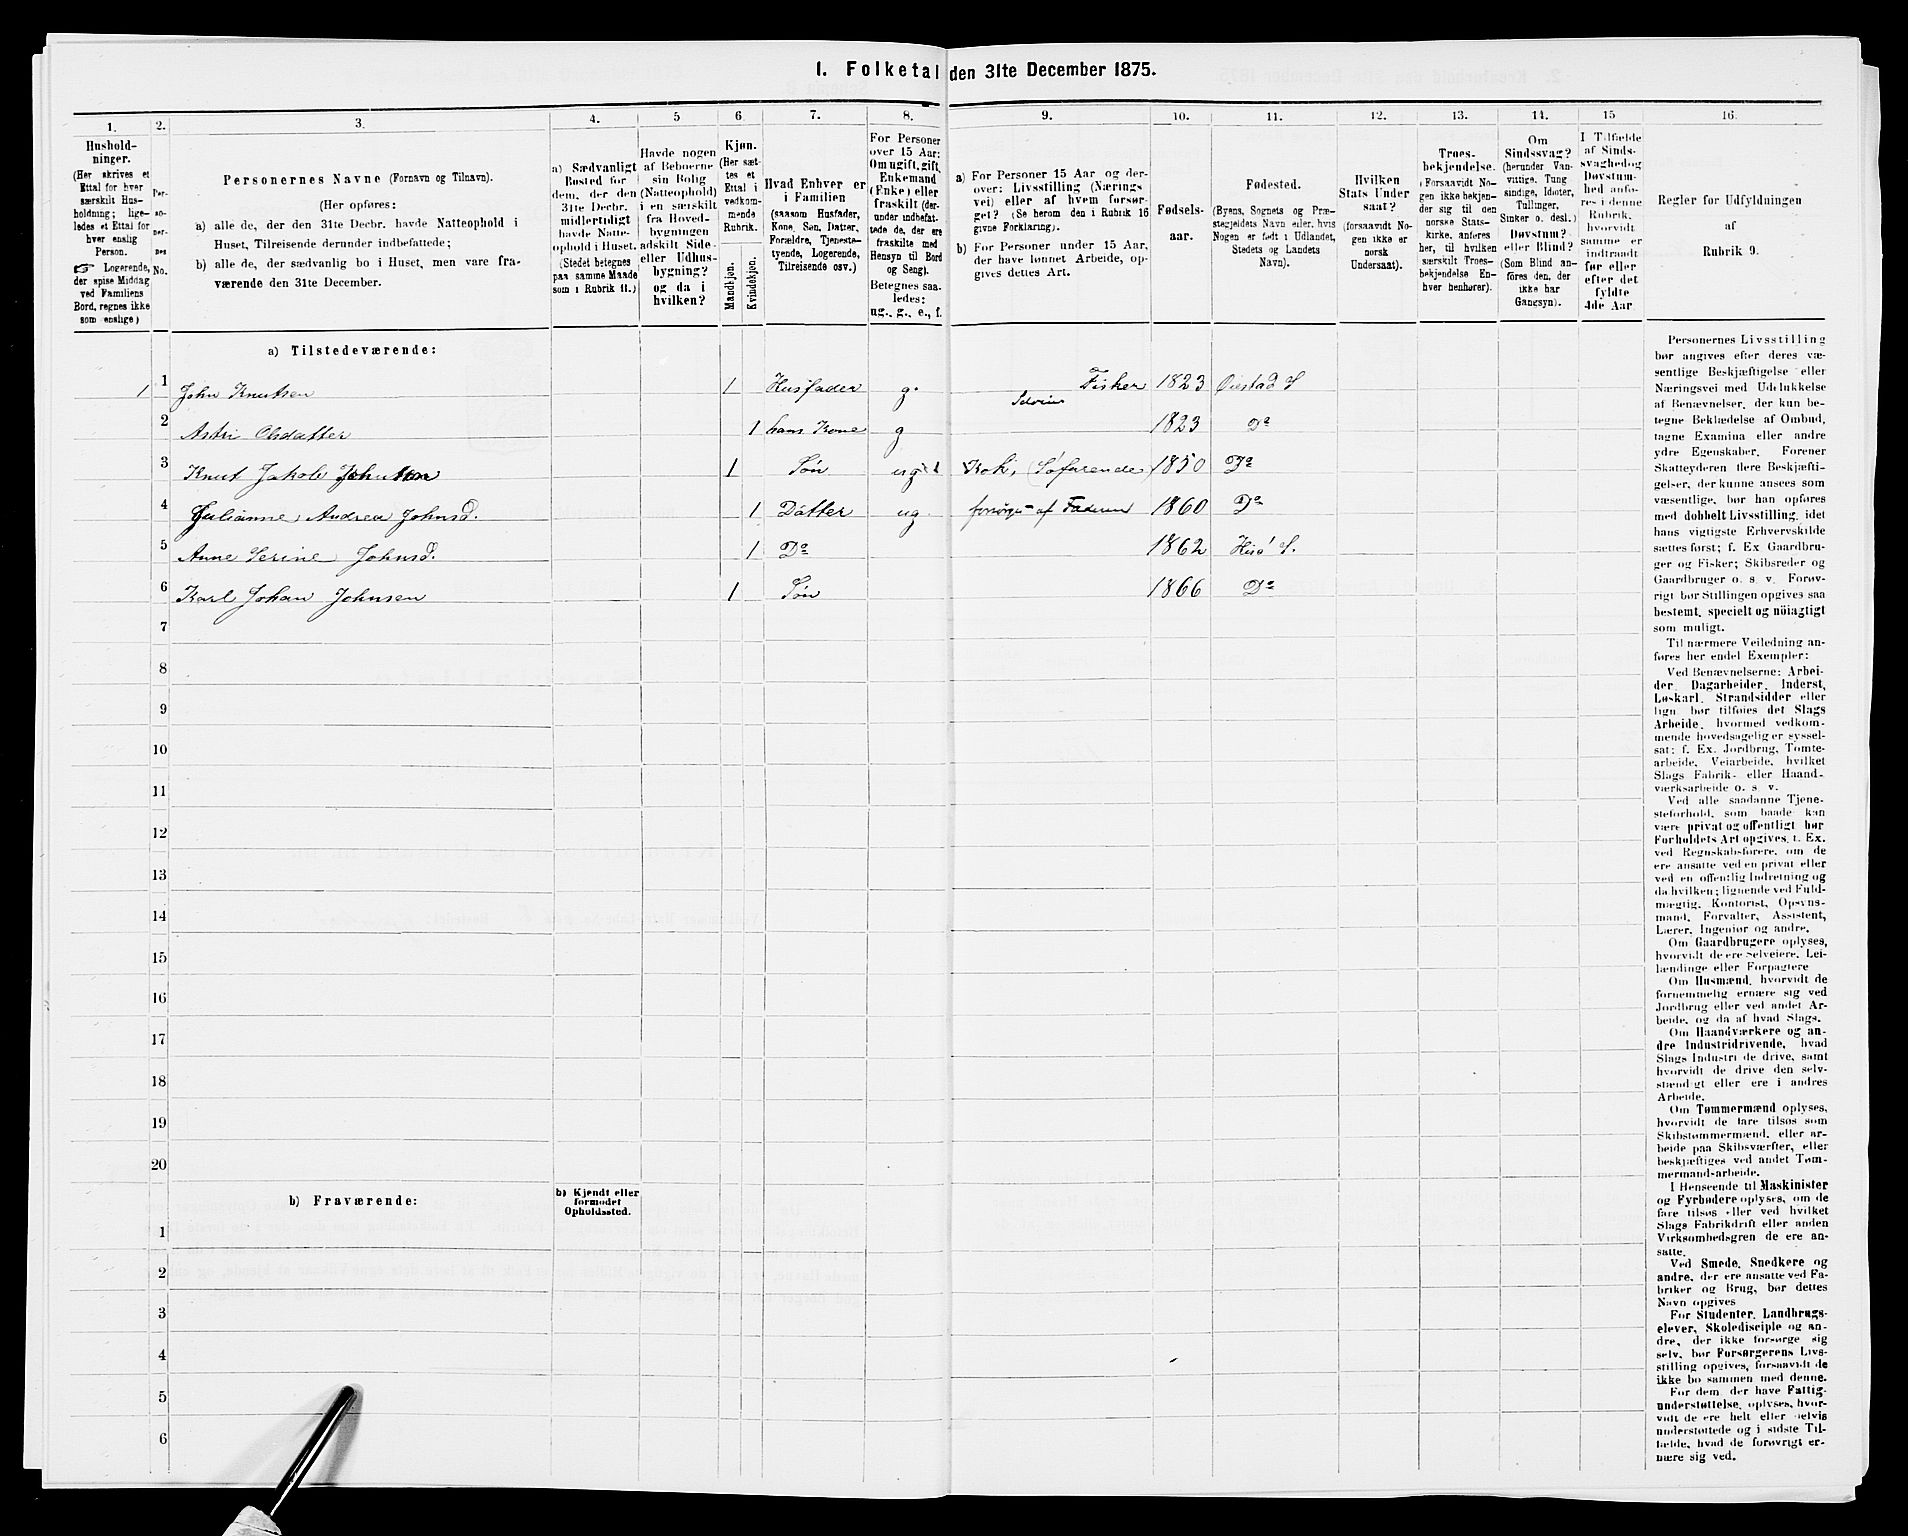 1. Folketal den 31te December 1875.
1.
Hushold-
ninger.
(Her skrives et
Ettal for hver
særskilt Hus-
holdning; lige-
ledes et Ettal for
hver enslig
Person.
☞ Logerende,
der spise Middag
ved Familiens
Bord, regnes ikke
som enslige)
2.
Per-
so-
ner-
nes
No.
3.
Personernes Navne (Fornavn og Tilnavn).
(Her opføres:
a) alle de, der den 31te Decbr. havde Natteophold i
Huset, Tilreisende derunder indbefattede;
b) alle de, der sædvanlig bo i Huset, men vare fra-
værende den 31te December.
4.
a) Sædvanligt
Bosted for
dem, der den
31te Decbr.
midlertidigt
havde Natte-
ophold i Huset.
(Stedet betegnes
paa samme Maade
som i Rubrik 11.)
5
Havde nogen
af Beboerne
sin Bolig
(Natteophold)
i en særskilt
fra Hoved-
bygningen
adskilt Side-
eller Udhus-
bygning?
og da i
hvilken?
6.
Kjøn.
(Her sæt-
tes et
Ettal i
vedkom-
mende
Rubrik.
Mandkjøn.
Kvindekjøn.
7.
Hvad Enhver er
i Familien
(saasom Husfader,
Kone, Søn, Datter,
Forældre, Tjeneste-
tyende, Logerende,
Tilreisende osv.)
8.
For Personer
over 15 Aar:
Om ugift, gift,
Enkemand
(Enke) eller
fraskilt (der-
under indbefat-
tede de, der ere
fraskilte med
Hensyn til Bord
og Seng).
Betegnes saa-
ledes:
ug., g., e., f.
9.
a) For Personer 15 Aar og der-
over: Livsstilling (Nærings-
vei) eller af hvem forsør-
get? (Se herom den i Rubrik 16
givne Forklaring).
b) For Personer under 15 Aar,
der have lønnet Arbeide, op-
gives dettes Art.
10.
Fødsels-
aar.
11.
Fødested.
(Byens, Sognets og Præ-
stegjeldets Navn eller, hvis
Nogen er født i Udlandet,
Stedets og Landets
Navn).
12.
Hvilken
Stats Under-
saat?
(forsaavidt No-
gen ikke er
norsk
Undersaat).
13.
Troes-
bekjendelse.
(Forsaavidt No-
gen ikke bekjen-
der sig til den
norske Stats-
kirke, anføres
her, til hvilken
særskilt Troes-
bekjendelse En-
hver henhører).
14.
Om
Sindssvag?
(herunder Van-
vittige, Tung
sindige, Idioter,
Tullinger,
Sinker o. desl.)
Døvstum?
eller Blind?
(Som Blind an-
føres den, der
ikke har
Gangsyn).
15
I Tilfælde
af Sinds-
svaghed og
Døvstum-
hed anfø-
res i denne
Rubrik,
hvorvidt
samme er
indtraadt
før eller
efter det
fyldte
4de Aar.
16.
Regler for Udfyldningen
af
Rubrik 9.
a) Tilstedeværende:
1 1 John Knutsen 1 Husfader g. Fisker 1823 Øiestad S
2 Astri Olsdatter 1 hans Kone g 1823 Do
3 Knut Jakob Johnsen 1 Søn ug Kok, (Søfarende) 1850 Do
4 Julianne Andrea Johnsd. 1 Datter ug. forsørges af Faderen 1860 Do
5 Anne Serine Johnsd. 1 Do 1862 Hisø S.
6 Karl Johan Johnsen 1 Søn 1866 Do
7
8
9
10
11
12
13
14
15
16
17
18
19
20
b) Fraværende:
b) Kjendt eller
formodet
Opholdssted.
1
2
3
4
5
6
Personernes Livsstilling
bør angives efter deres væ-
sentlige Beskjæftigelse eller
Næringsvei med Udelukkelse
af Benævnelser, der kun be-
tegne Beklædelse af Ombud,
tagne Examina eller andre
ydre Egenskaber. Forener
Skatteyderen flere Beskjæfti-
gelser, der kunne ansees som
væsentlige, bør han opføres
med dobbelt Livsstilling, idet
hans vigtigste Erhvervskilde
sættes først; f. Ex Gaardbru-
ger og Fisker; Skibsreder og
Gaardbruger o. s. v. Forøv-
rigt bør Stillingen opgives saa
bestemt, specielt og nöiagtigt
som muligt.
Til nærmere Veiledning an-
føres her endel Exempler:
Ved Benævnelserne: Arbei-
der, Dagarbeider, Inderst,
Løskarl, Strandsidder eller
lign bør tilføies det Slags
Arbeide, hvormed vedkom-
mende hovedsagelig er syssel-
sat; f. Ex. Jordbrug, Tomte-
arbeide, Veiarbeide, hvilket
Slags Fabrik- eller Haand-
værksarbeide o. s. v.
Ved alle saadanne Tjene-
steforhold, som baade kan
være privat og offentligt bør
Forholdets Art opgives, t. Ex.
ved Regnskabsførere, om de
ere ansatte ved en privat eller
ved en offentlig Indretning og
da hvilken; lignende ved Fuld-
mægtig, Kontorist, Opsyns-
mand, Forvalter, Assistent,
Lærer, Ingeniør og andre.
Om Gaardbrugere oplyses,
hvorvidt de ere Selveiere, Lei-
lændinge eller Forpagtere
Om Husmænd, hvorvidt de
fornemmelig ernære sig ved
Jordbrug eller ved andet Ar-
beide, og da af hvad Slags.
Om Haandværkere og an-
dre Industridrivende, hvad
Slags Industri de drive, samt
hvorvidt de drive den selv-
stændigt eller ere i andres
Arbeide.
Om Tømmermænd oplyses,
hvorvidt de fare tilsøs som
Skibstømmermænd, eller ar-
beide paa Skibsværfter, eller
beskjæftiges ved andet Tøm-
mermandsarbeide.
I Henseende til Maskinister
og Fyrbødere oplyses, om de
fare tilsøs eller ved hvilket
Slags Fabrikdrift eller anden
Virksomhedsgren de ere an-
satte.
Ved Smede, Snedkere og
andre, der ere ansatte ved Fa-
briker og Brug, bør dettes
Navn opgives
For Studenter, Landbrugs-
elever, Skoledisciple og an-
dre, der ikke forsørge sig
selv, bør Forsørgerens Livs-
stilling opgives, forsaavidt de
ikke bo sammen med denne.
For dem der have Fattig-
understøttelse, oplyses, hvor-
vidt de ere helt eller delvis
understøttede og i sidste Til-
fælde, hvad de forøvrigt er-
nære sig ved.